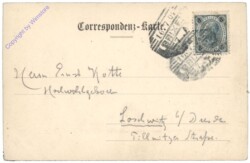 Copyright by Wienskowski
Correspondenz-Karte.
Herrn Ernst Kotte
Hochwohlgeboren
Loschwitz b/ Dresden
Pillnitzer Strasse.